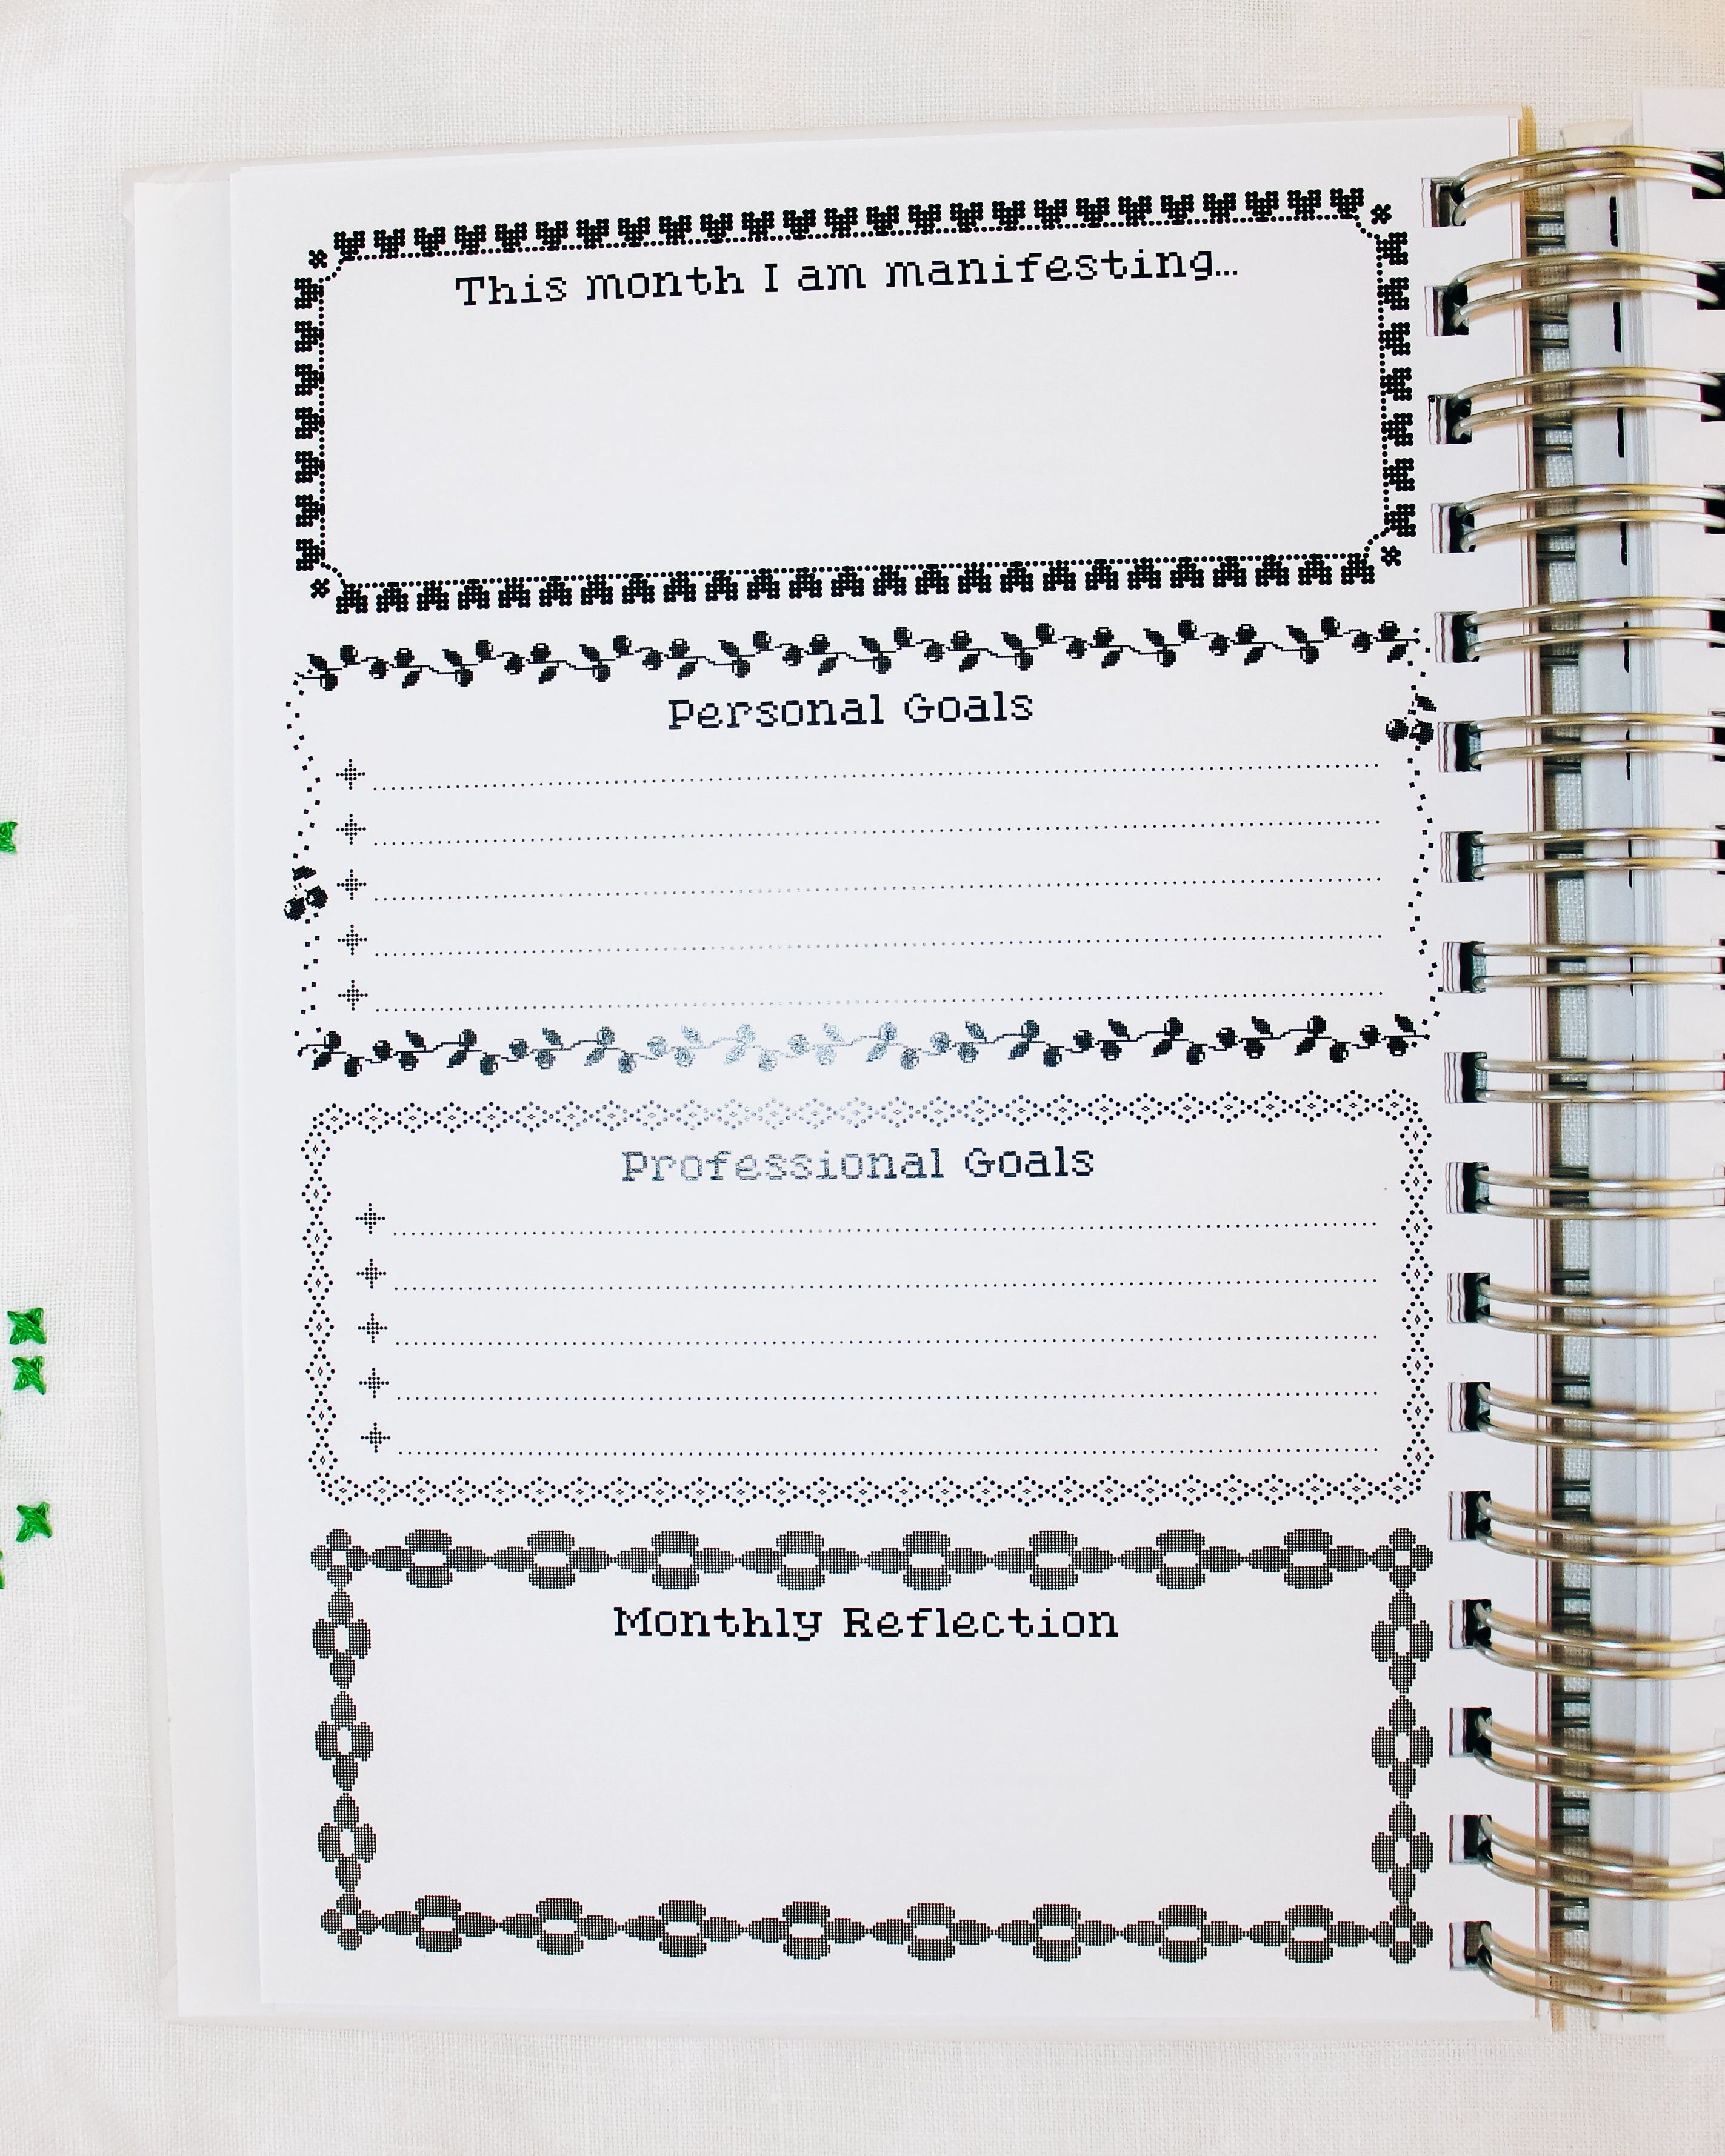 This month I am manifesting...
Personal Goals
Professional Goals
Monthly Reflection